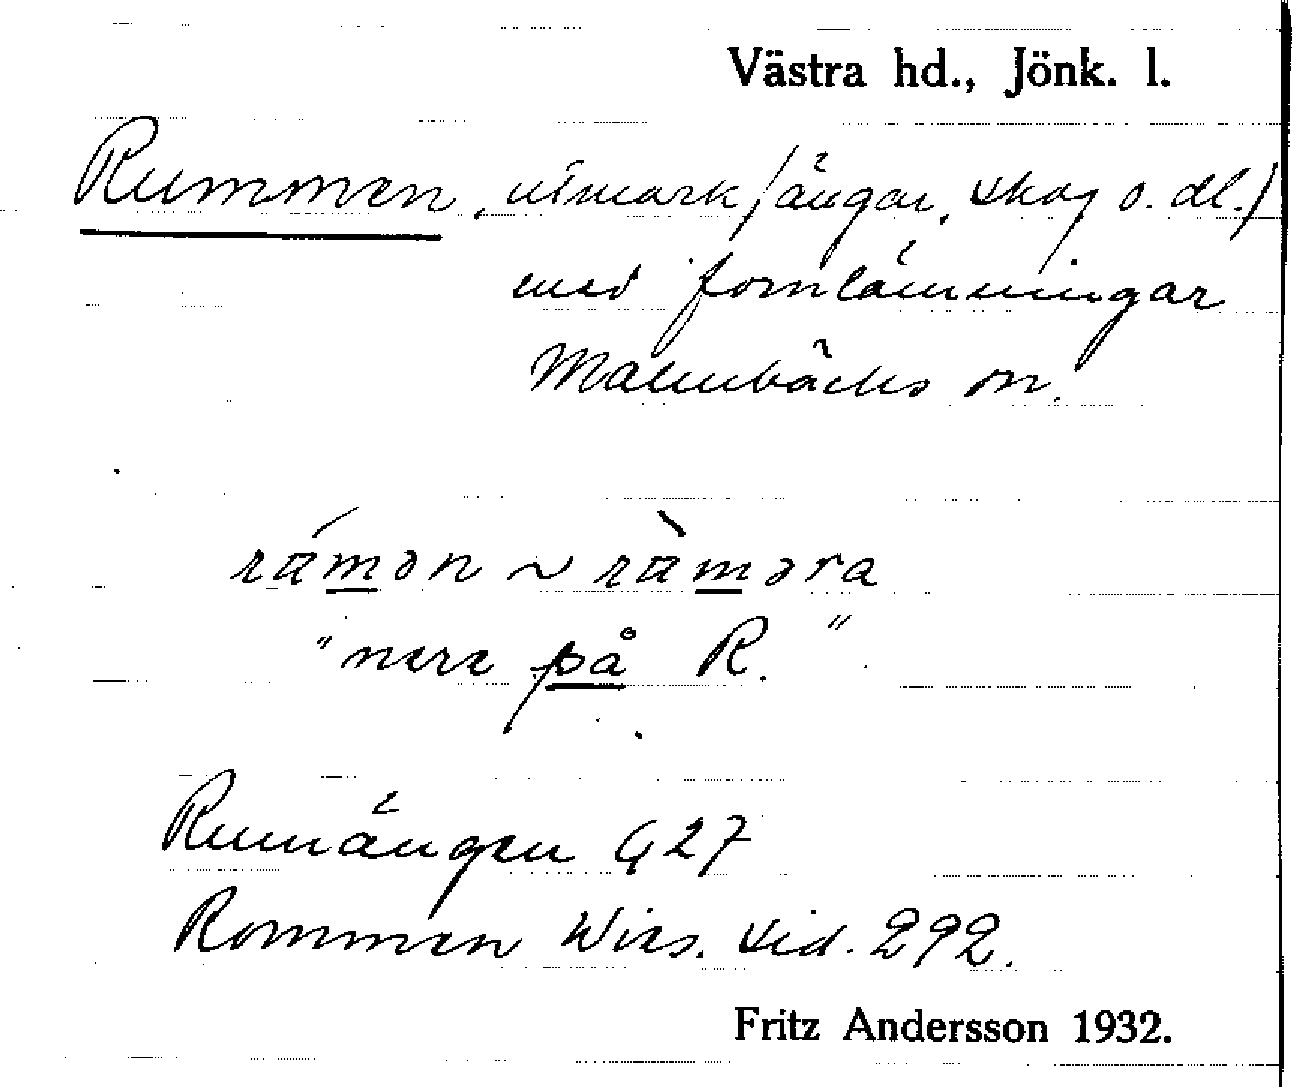 Västra hd., Jönk. l.
Rummen, utmark /ängar, skog o. dl./
med fornlämningar
Malmbäcks sn.
rämən ~ räməra
"nere på R."
Rumängen G 27
Rommen Wies. sid. 292.
Fritz Andersson 1932.